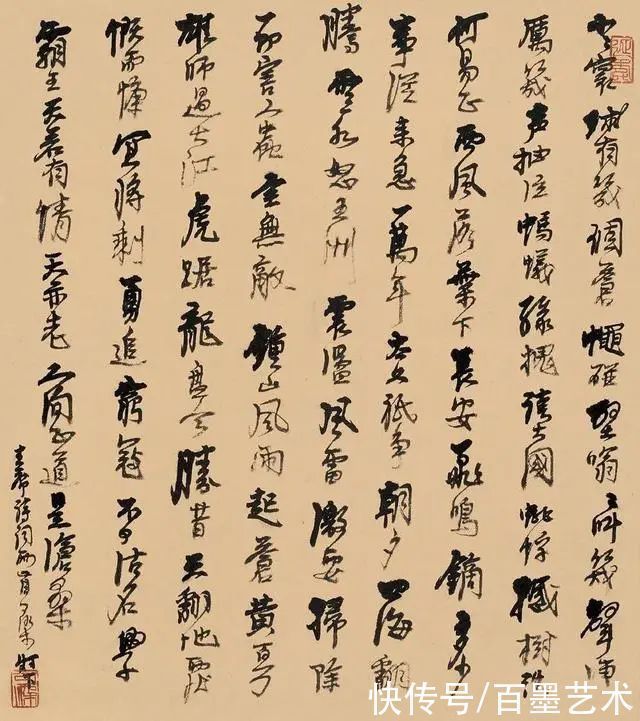 小寰球有幾個蒼蠅碰壁嗡〻叫幾聲凄
厲幾声抽泣螞蟻緣槐誇大國蚍蜉撼樹談
何易正西風落葉下長安飛鳴鏑多少
事從来急一萬年太久祇争朝夕四海翻
騰雲水怒五洲震盪風雷激要掃除
一切害人蟲全無敵鍾山風雨起蒼黄百万
雄師過大江虎踞龍盤今勝昔天翻地覆
慨而慷宜將剩勇追窮寇不可沽名學
霸王天若有情天亦老人間正道是滄桑
主席詩詞两首
快传号/百墨艺术